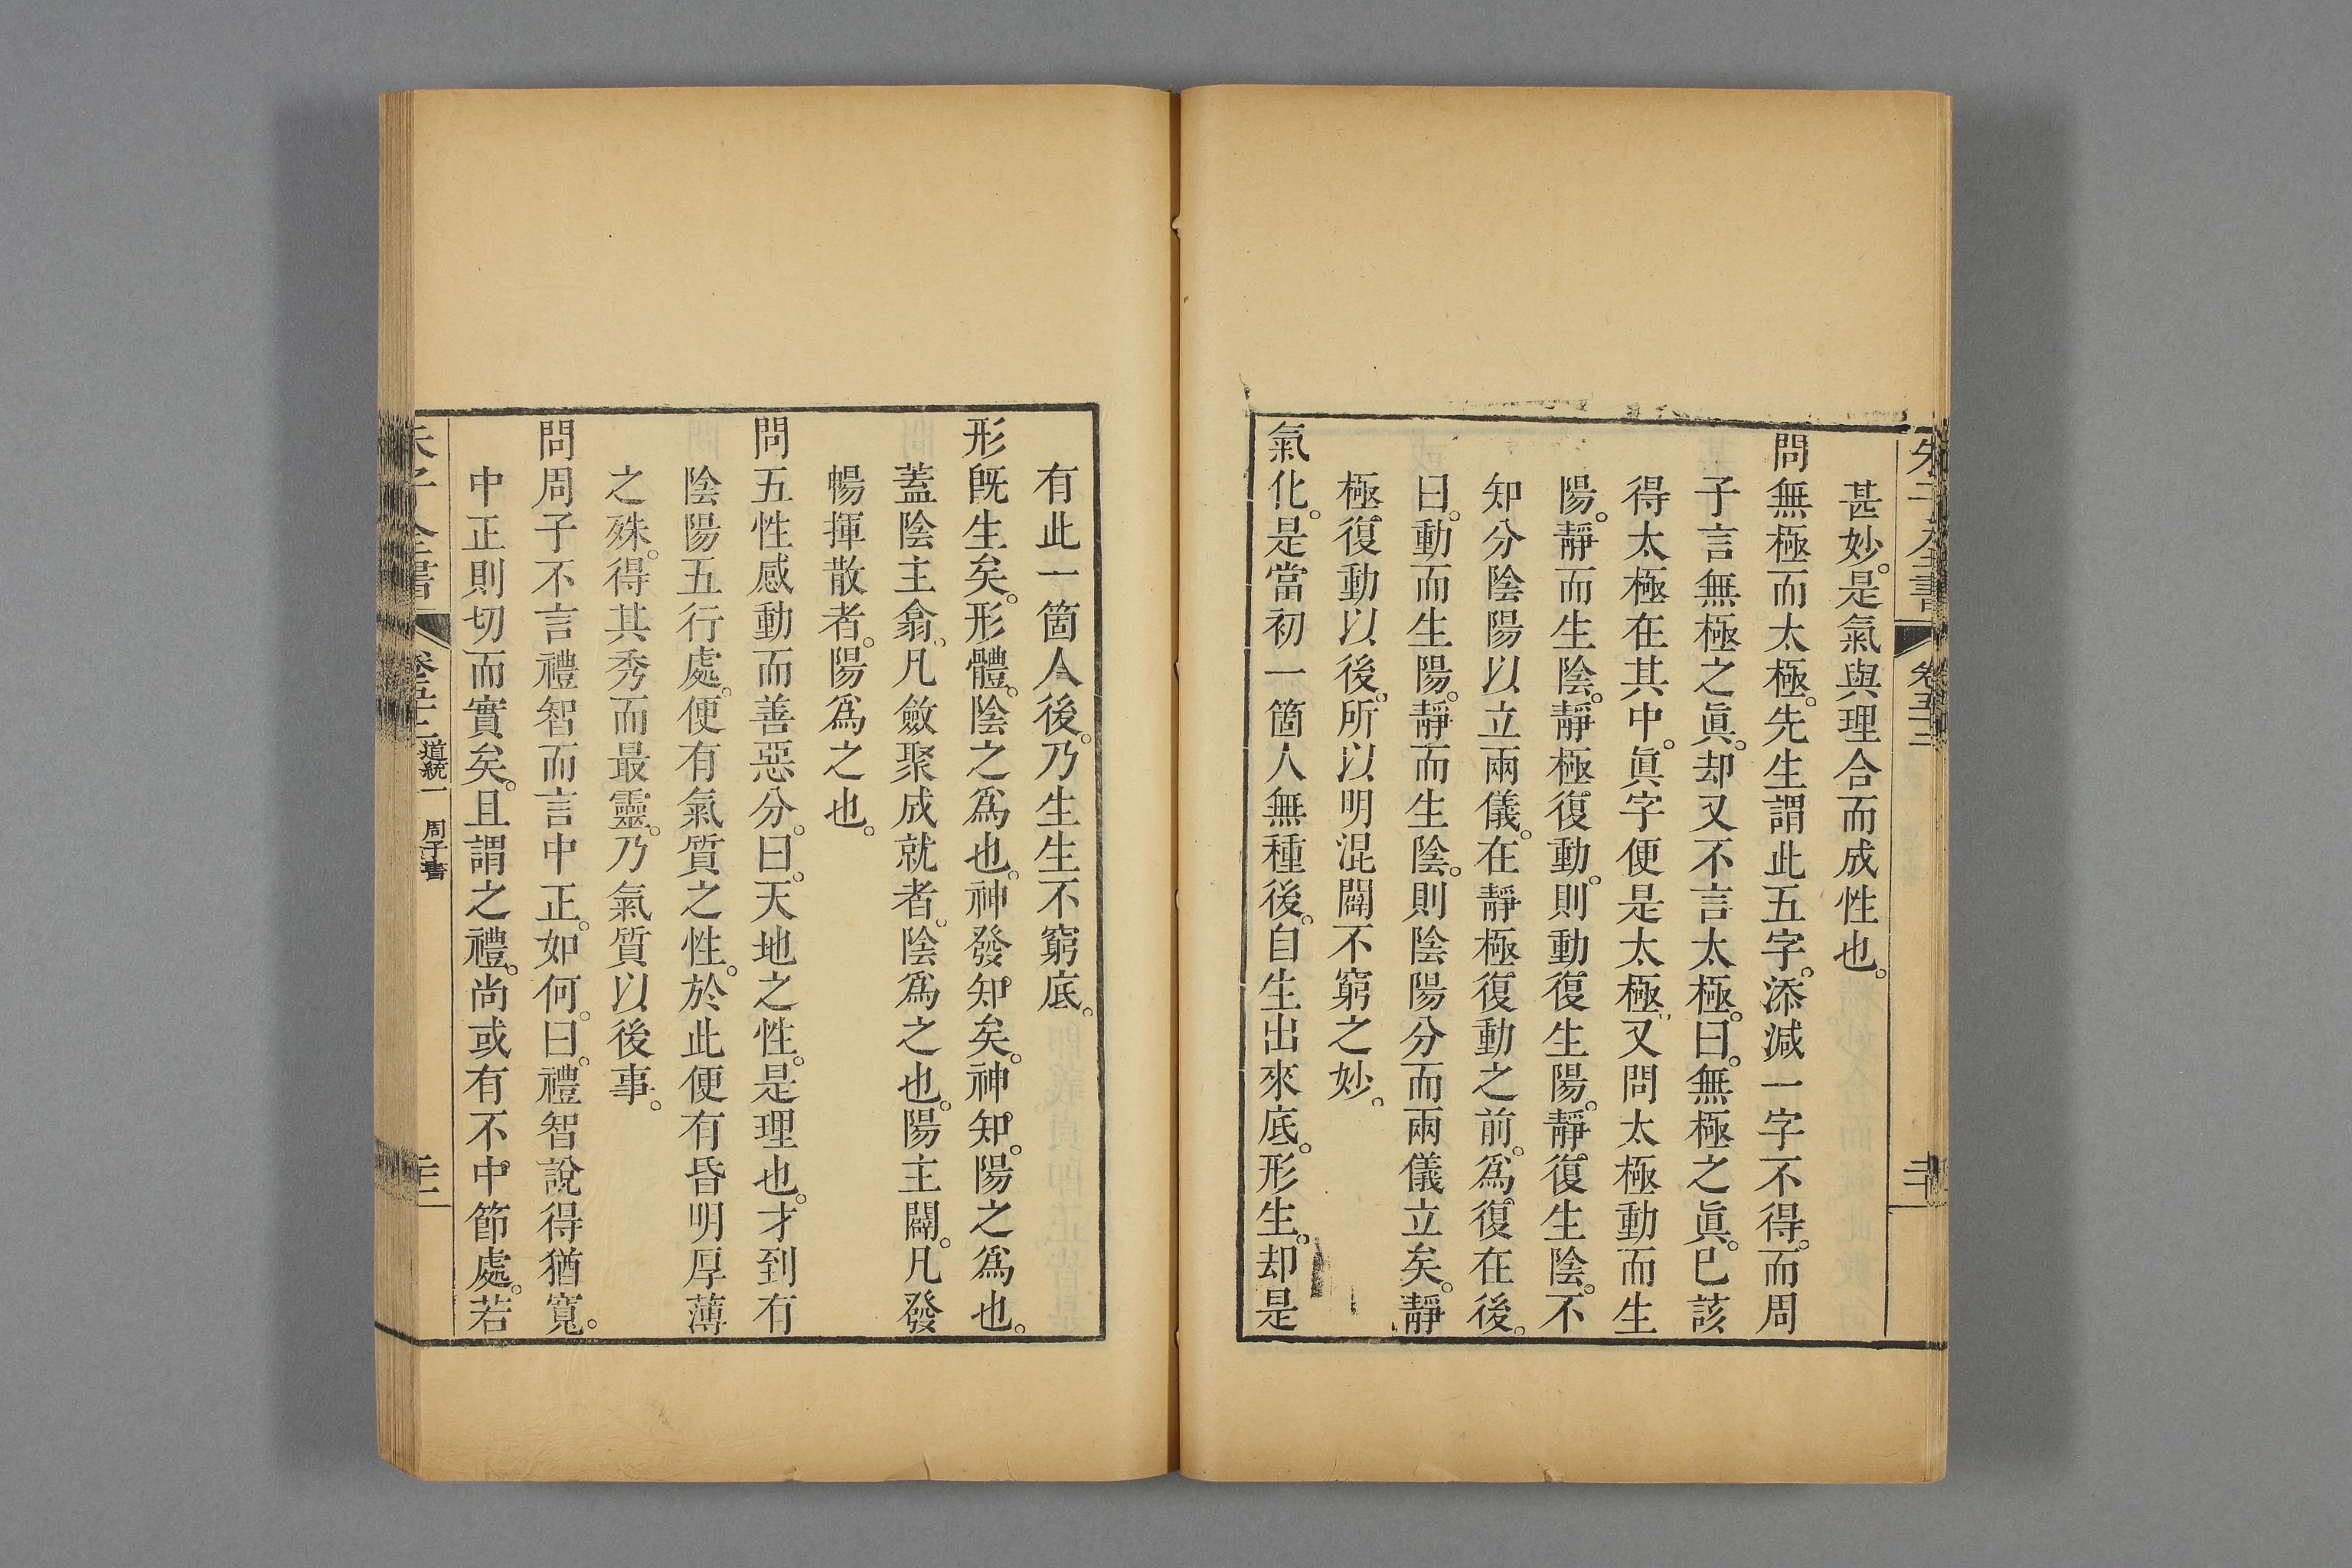 朱子全書
卷五十二
甚妙。是氣與理合而成性也。
問無極而太極。先生謂此五字。添減一字不得。而周
子言無極之眞。却又不言太極。曰。無極之眞。已該
得太極在其中。眞字便是太極。又問太極動而生
陽。靜而生陰。靜極復動。則動復生陽。靜復生陰。不
知分陰陽以立兩儀。在靜極復動之前。爲復在後。
曰。動而生陽。靜而生陰。則陰陽分而兩儀立矣。靜
極復動以後。所以明混闢不窮之妙。
氣化。是當初一箇人無種後。自生出來底。形生。却是
有此一箇人後。乃生生不窮底。
形旣生矣。形體。陰之爲也。神發知矣。神知。陽之爲也。
蓋陰主翕、凡斂聚成就者。陰爲之也。陽主闢。凡發
暢揮散者。陽爲之也。
問五性感動而善惡分。曰。天地之性。是理也。才到有
陰陽五行處。便有氣質之性。於此便有昏明厚薄
之殊。得其秀而最靈。乃氣質以後事。
問周子不言禮智而言中正。如何。曰。禮智說得猶寬。
中正則切而實矣。且謂之禮。尚或有不中節處。若
道統一 周子書